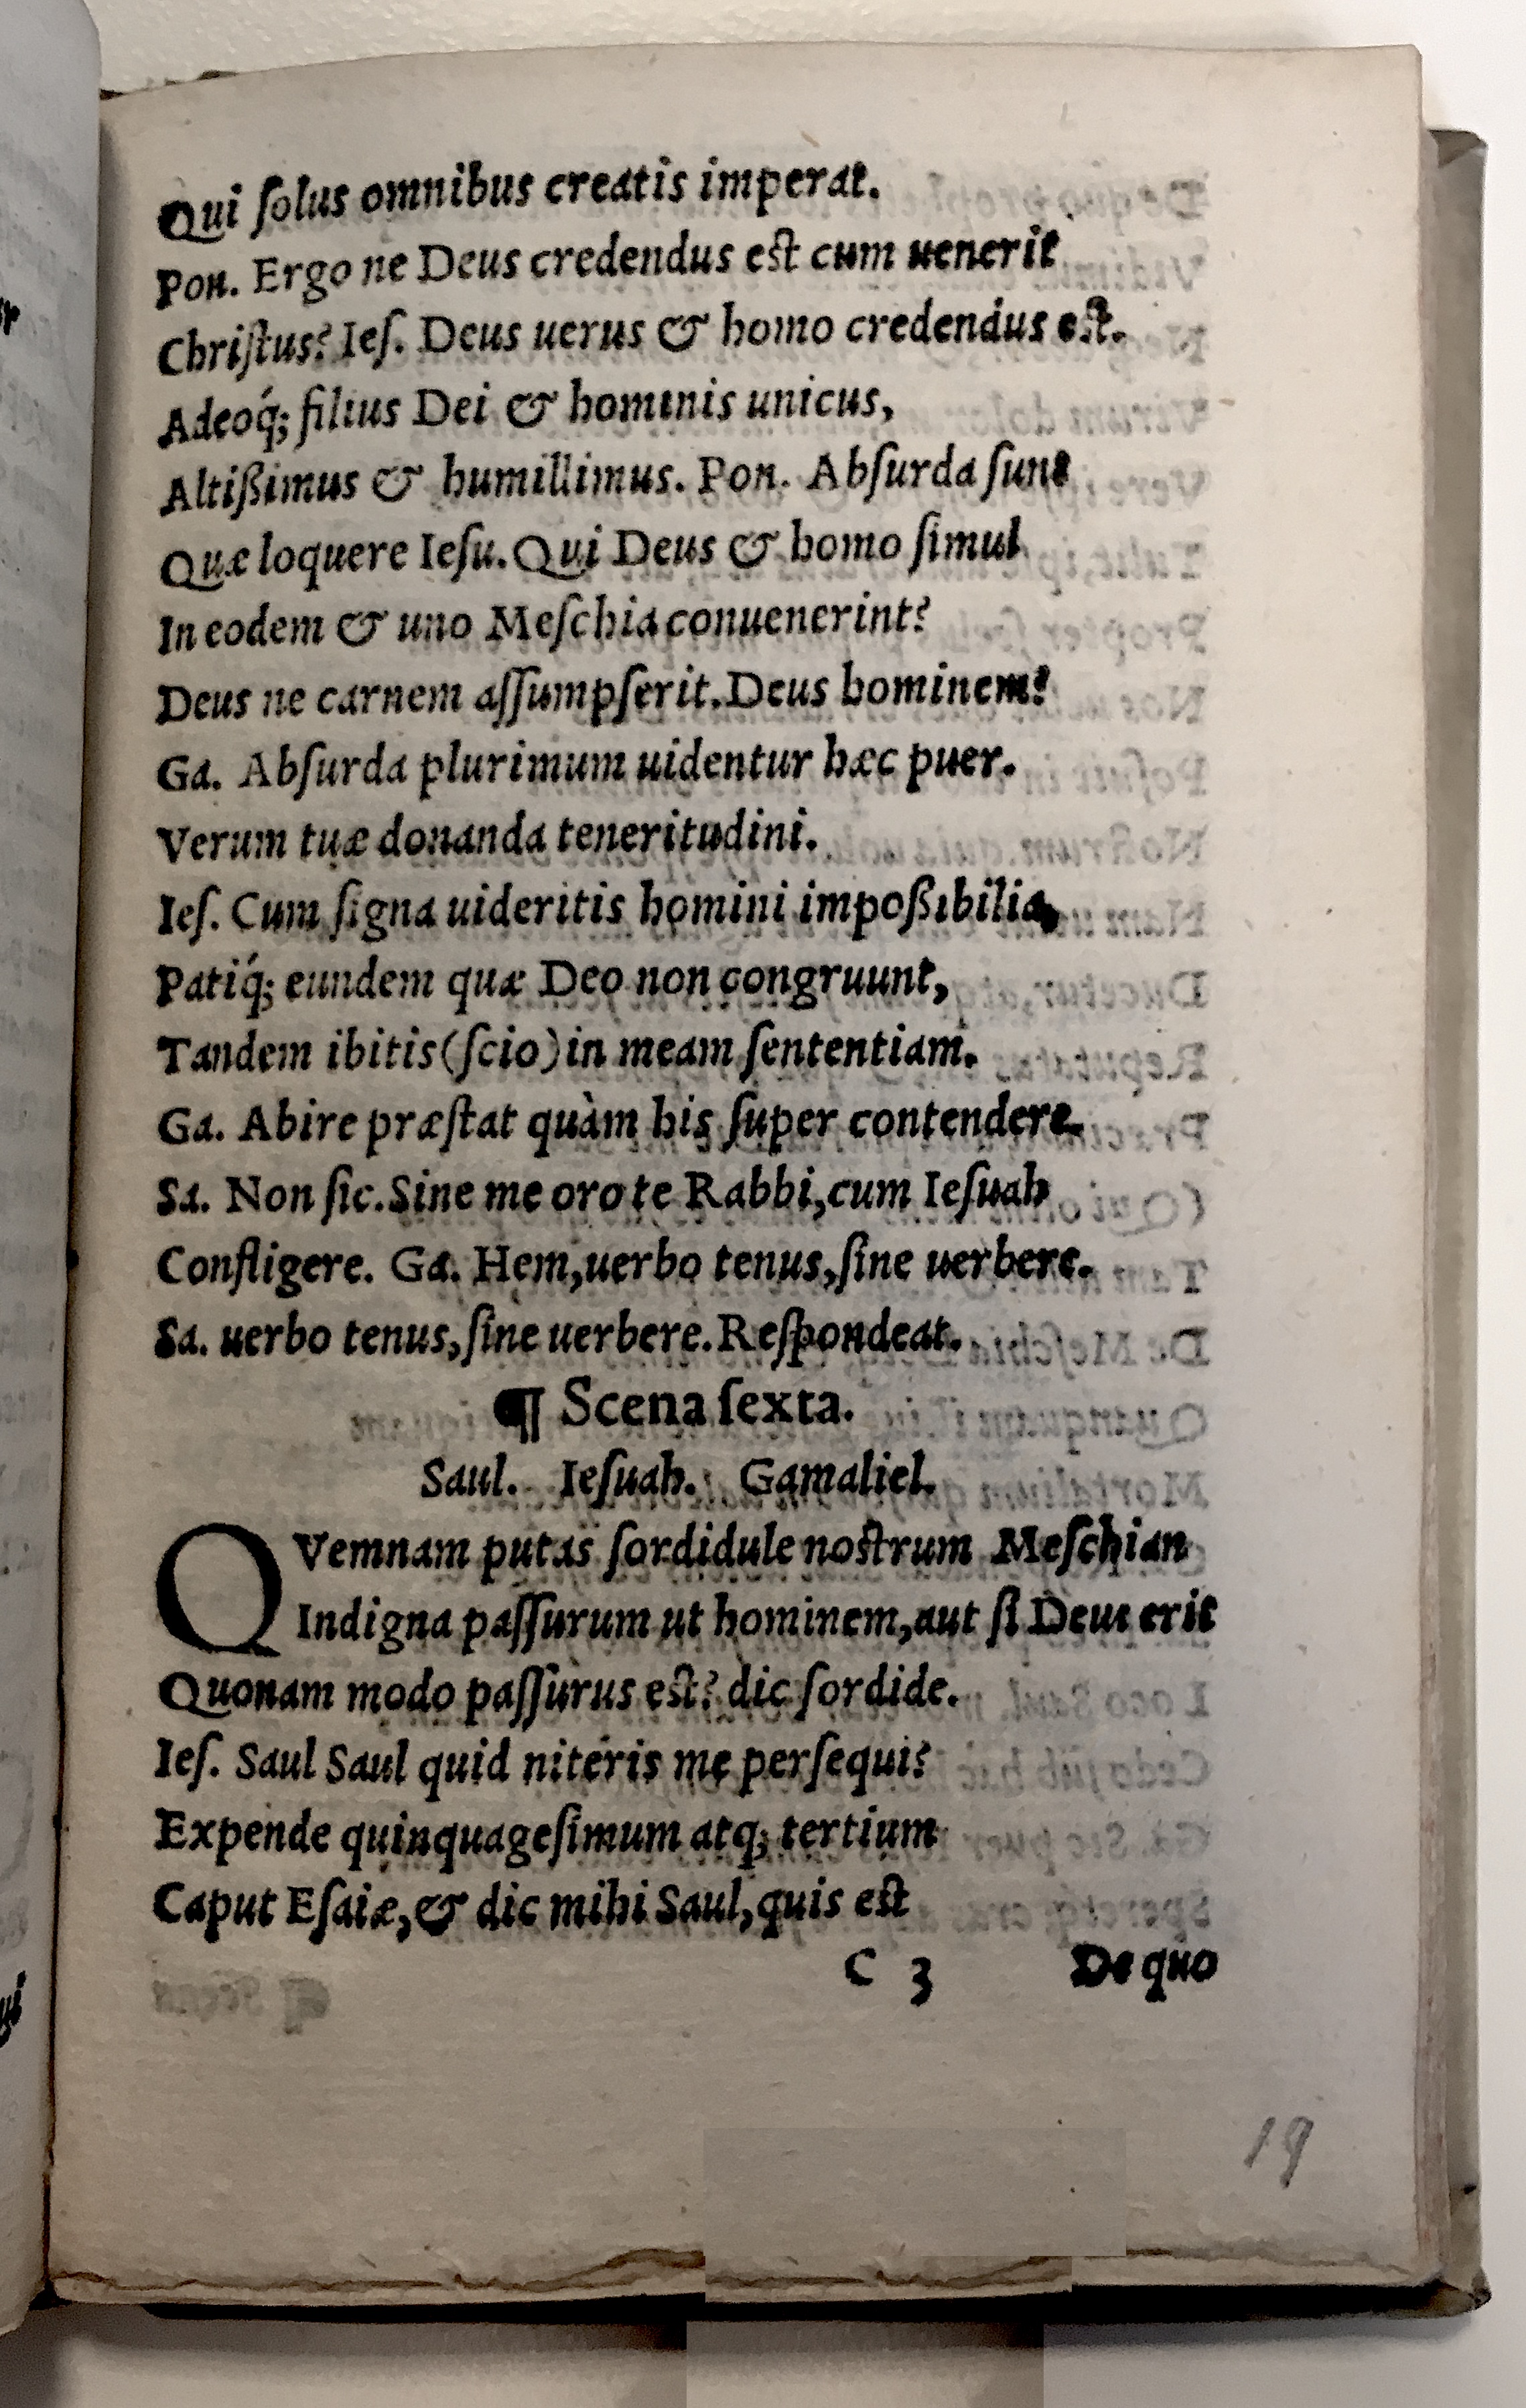 Qui ſolus omnibus creatis imperat.
Pon. Ergo ne Deus credendus est cum uenerit
Chriſtus? Ieſ. Deus uerus & homo credendus est.
Adeoq́; filius Dei & hominis unicus,
Altißimus & humillimus. Pon. Abſurda ſunt
Quæ loquere Ieſu. Qui Deus & homo ſimul
In eodem & uno Meſchia conuenerint?
Deus ne carnem aſſumpſerit. Deus hominem?
Ga. Abſurda plurimum uidentur hæc puer.
Verum tuæ donanda teneritudini.
Ieſ. Cum ſigna uideritis homini impoßibilia,
Patiq́; eundem quæ Deo non congruunt,
Tandem ibitis (ſcio) in meam ſententiam.
Ga. Abire præſtat quàm his ſuper contendere.
Sa. Non ſic. Sine me oro te Rabbi, cum Ieſuah
Confligere. Ga. Hem, uerbo tenus, ſine uerbere.
Sa. uerbo tenus, ſine uerbere. Reſpondeat.
¶ Scena ſexta.
Saul. Ieſuah. Gamaliel.
QVemnam putas ſordidule nostrum Meſchian
Indigna paſſurum ut hominem, aut ſi Deus erit
Quonam modo paſſurus est? dic ſordide.
Ieſ. Saul Saul quid niteris me perſequi?
Expende quinquageſimum atq; tertium
Caput Eſaiæ, & dic mihi Saul, quis est
C 3 De quo
19